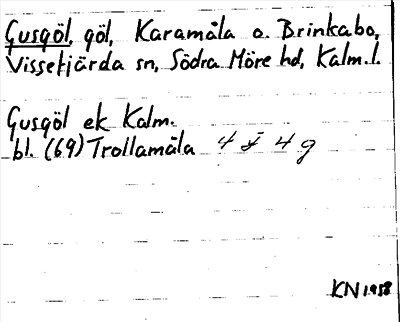 Gusgöl, göl, Karamåla o. Brinkabo,
Vissefjärda sn, Södra Möre hd, Kalm. l.
Gusgöl ek Kalm.
bl. (69) Trollamåla 4 f 4 g
KN 1958